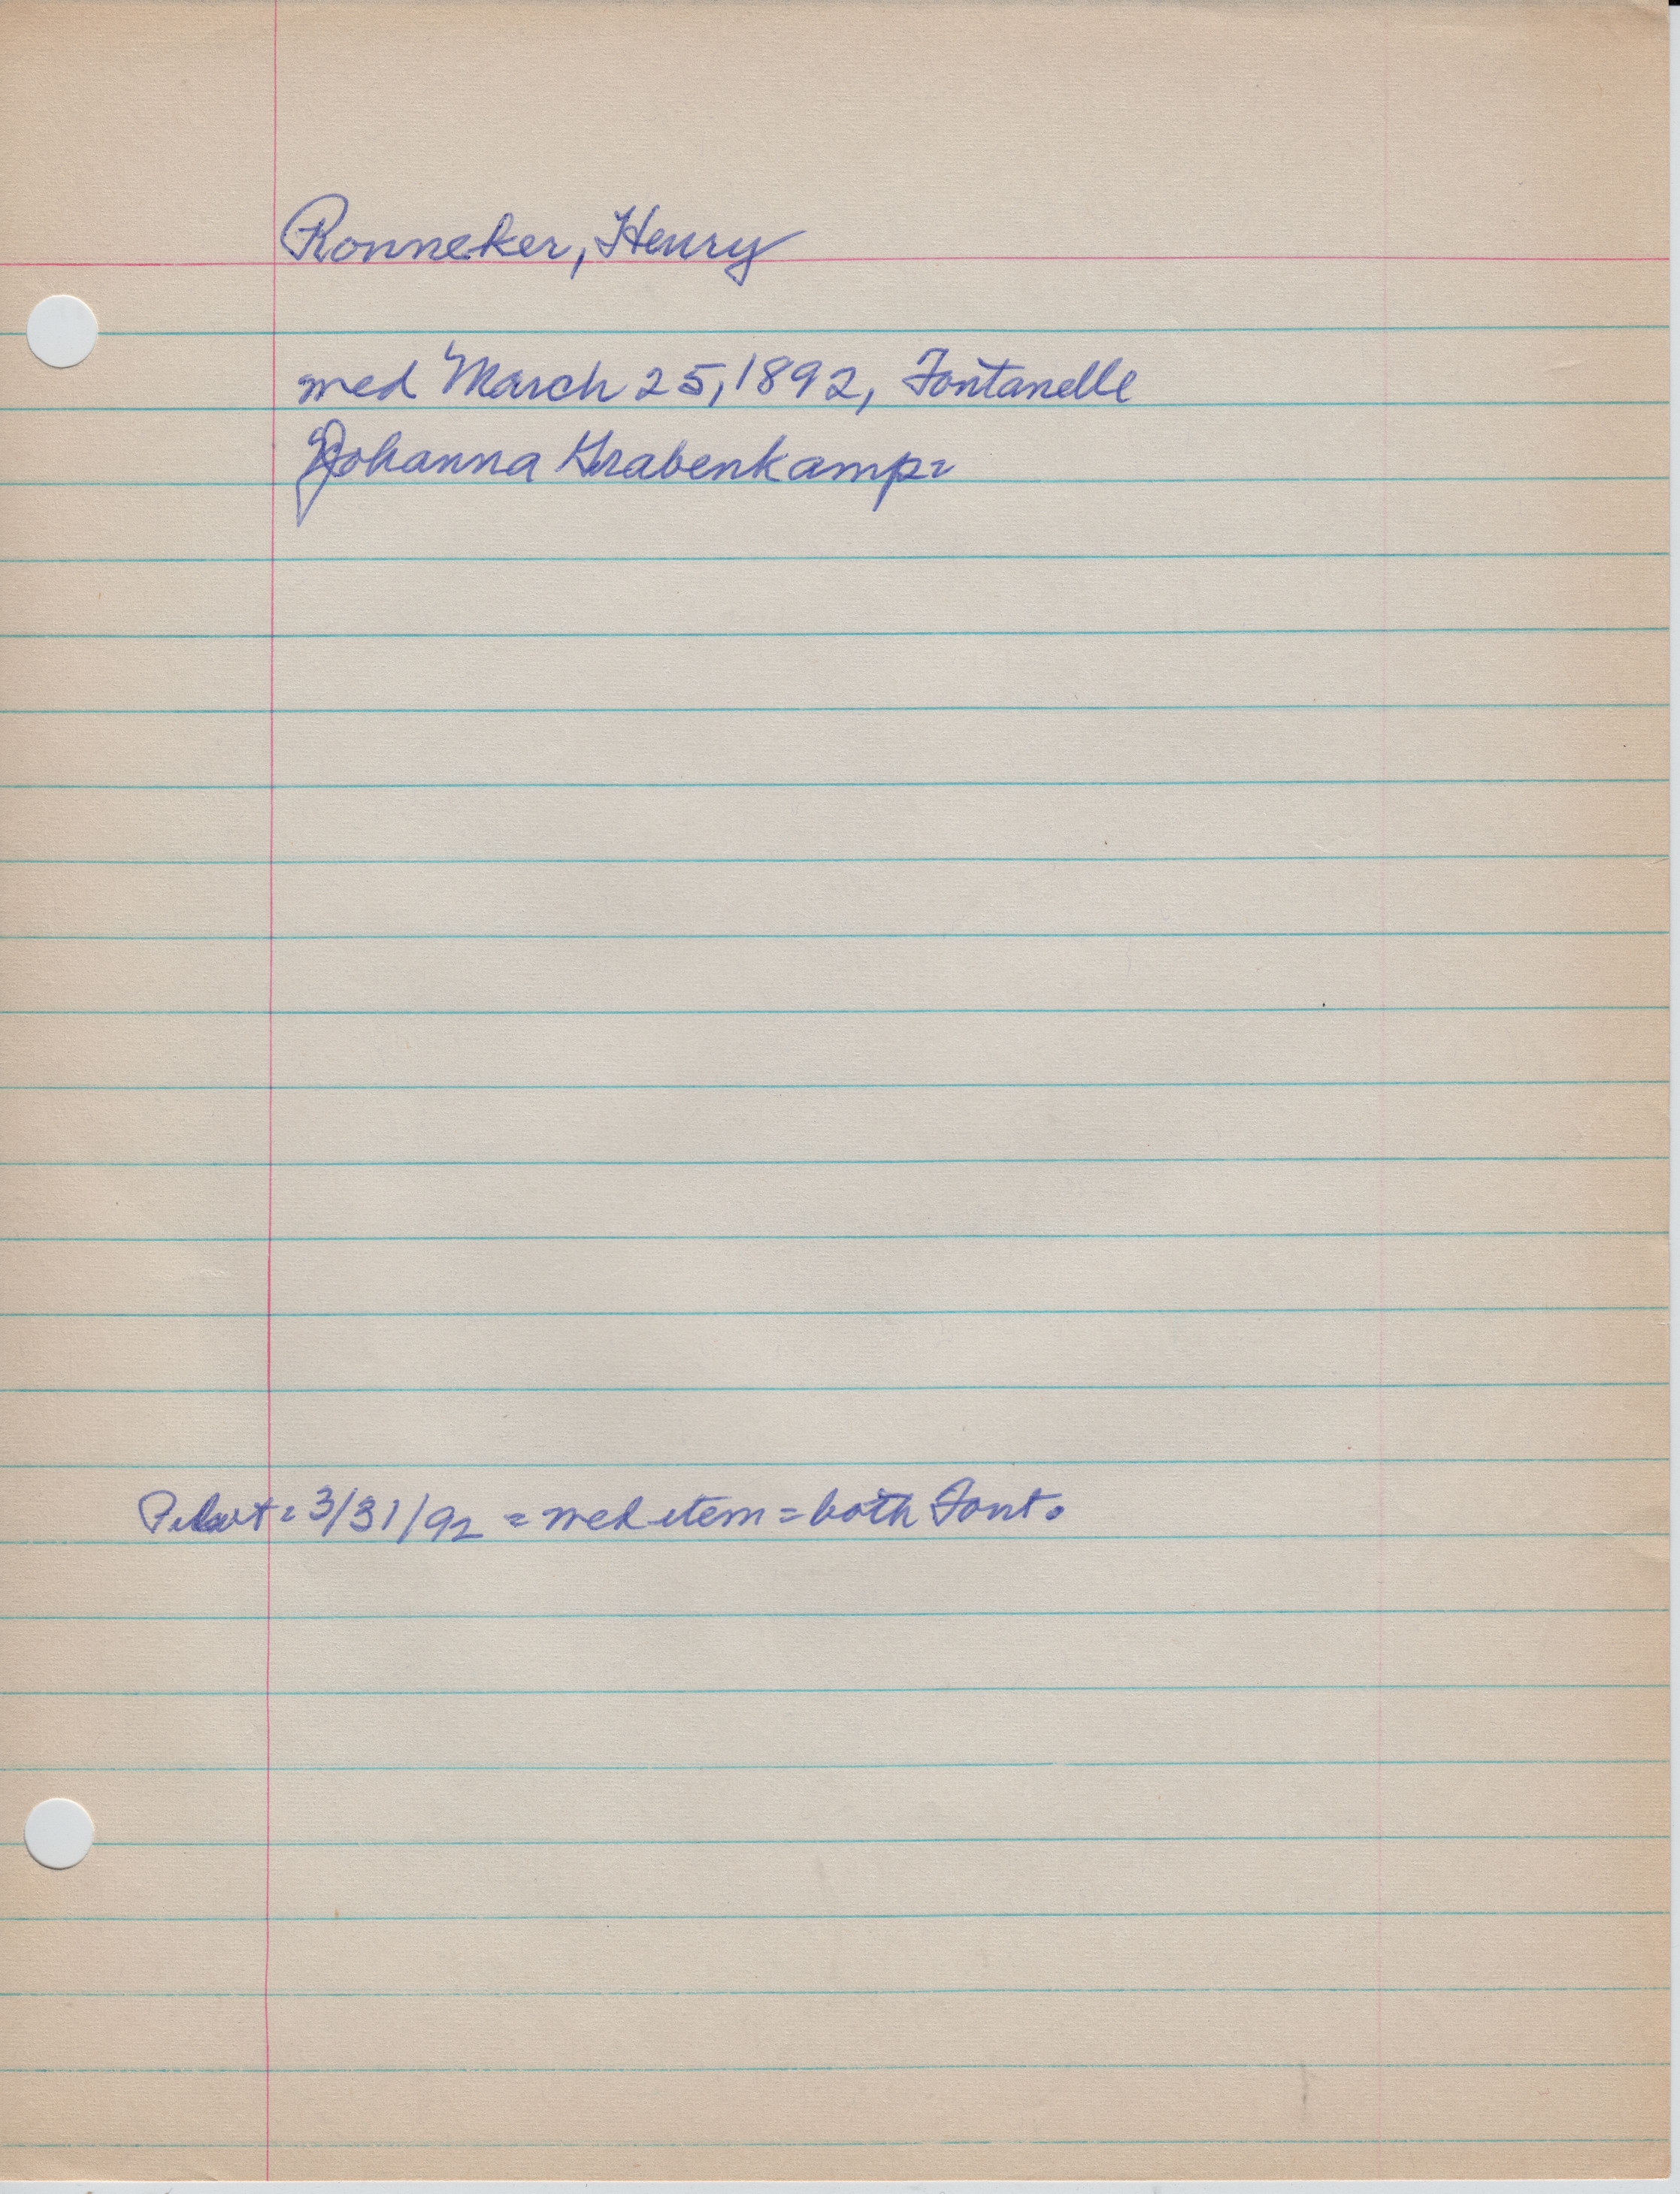 Ronneker, Henry
med March 25, 1892, Fontanelle
Johanna Grabenkamp=
= 3/31/92 = med item = both Font.